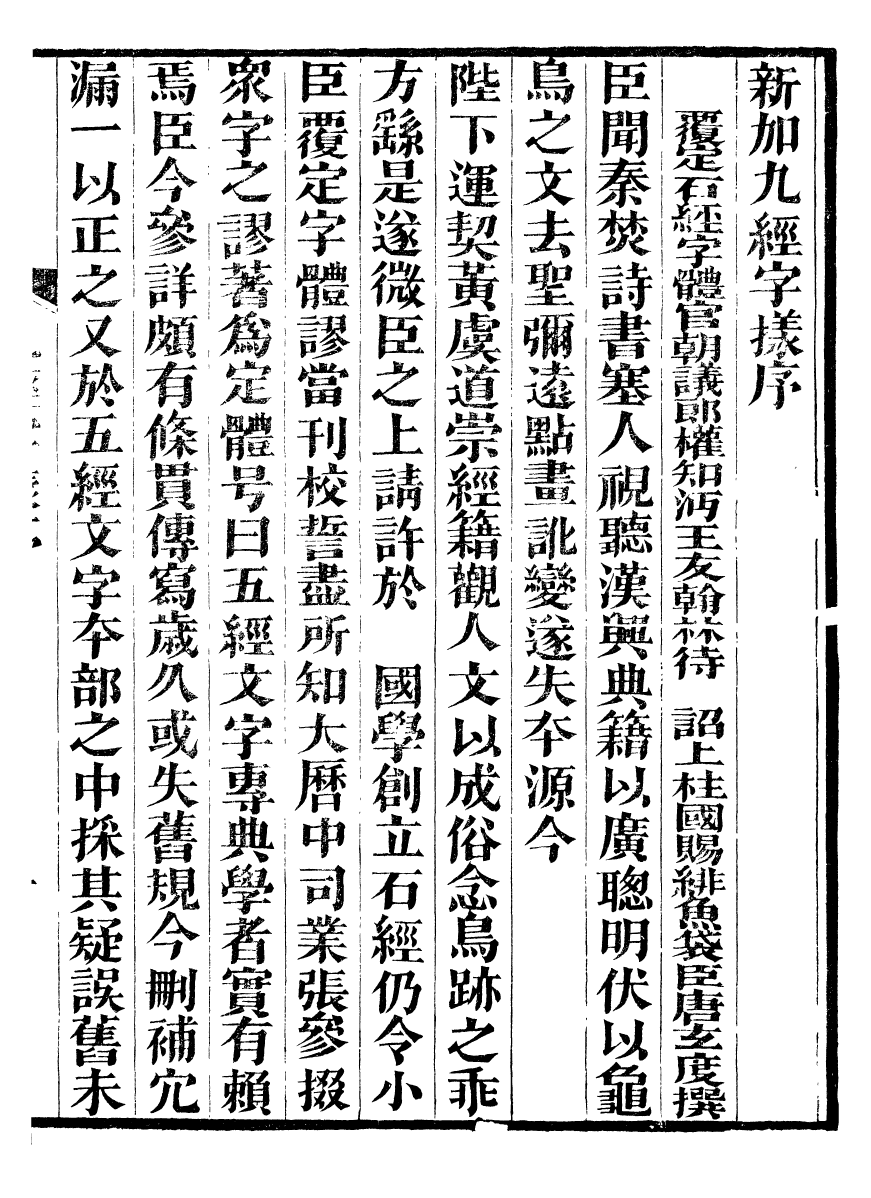 新加九經字㨾序
覆定石經字體官朝議郎權知沔王友翰林待　詔上柱國賜緋魚袋臣唐玄度撰
臣聞秦焚詩書塞人視聽漢興典籍以廣聰明伏以龜
鳥之文去聖彌遠點畫訛變遂失夲源今
陛下運契黃虞道崇經籍觀人文以成俗念鳥跡之乖
方繇是遂微臣之上請許於　國學創立石經仍令小
臣覆定字體謬當刊校誓盡所知大曆中司業張參掇
衆字之謬著爲定體号曰五經文字專典學者實有賴
焉臣今參詳頗有條貫傳寫歲久或失舊規今刪補冗
漏一以正之又於五經文字夲部之中採其疑誤舊未